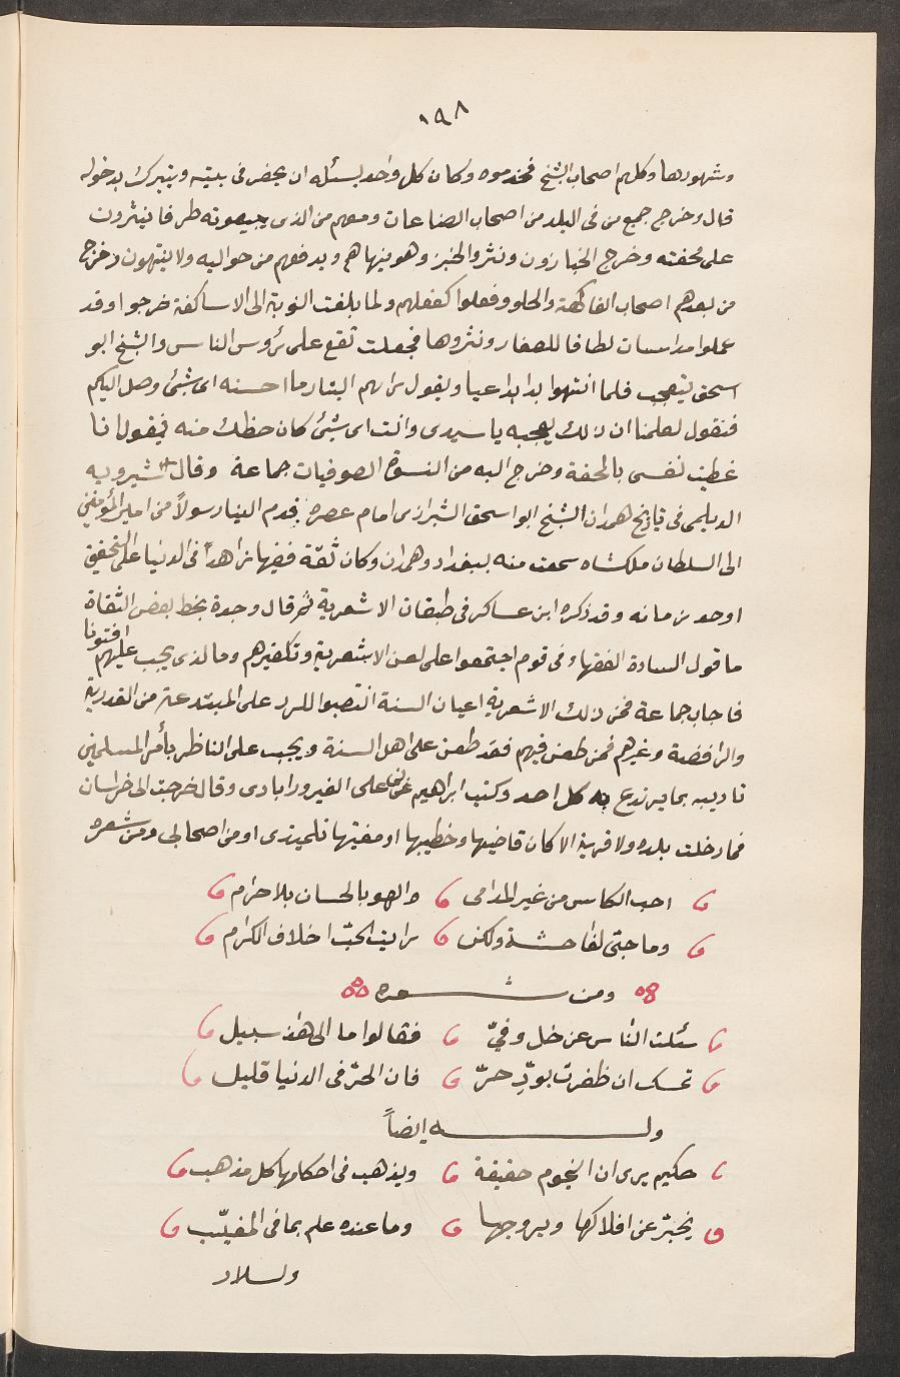 ١٩٨
وشهودها وكلهم اصحاب الشيخ فخدموه وكان كل واحد يسئله ان يحضر فى بيته ويتبرك بدخوله
قال وخرج جميع من فى البلد من اصحاب الصناعات ومعهم من الذى يبيعونه طرفا ينثرون
على محفته وخرج الخبازون ونثروا الخبز وهو ينهاهم ويدفعهم من حواليه ولا ينتهون وخرج
من بعدهم اصحاب الفاكهة والحلو وفعلوا كفعلهم ولما بلغت النوبة الى الاساكفة خرجوا وقد
عملوا مداسات لطافا للصغار ونثروها فجعلت تقع على رؤس الناس والشيخ ابو
اسحق يتعجب فلما انتهوا بدا يداعبنا ويقول رايتم النثار ما احسنه اى شئ وصل اليكم
فنقول لعلمنا ان ذلك يعجبه يا سيدى وانت اى شئ كان حظك منه فيقول انا
غطيت نفسى بالمحفة وخرج اليه من النسوة الصوفيات جماعة وقال شيرويه
الديلمى فى تاريخ همدان الشيخ ابو اسحق الشيرازى امام عصره قدم الينا رسولاً من امير المؤمنين
الى السلطان ملكشاه سمعت منه ببغداد وهمدان وكان ثقة فقيها زاهداً فى الدنيا على التحقيق
اوحد زمانه وقد ذكره ابن عساكر فى طبقات الاشعرية ثم قال وجدة بخط بعض الثقاة
ما قول السادة الفقهاء فى قوم اجتمعوا على لعن الاشعرية وتكفيرهم وما الذى يجب عليهم افتونا
فاجاب جماعة فمن ذلك الاشعرية اعيان السنة انتصبوا للرد على المبتدعة من القدرية
والرافضة وغيرهم فمن طعن فيهم فقد طعن على اهل السنة ويجب على الناظر بأمر المسلمين
تاديبه بما يرتدع به كل احد وكتب ابراهيم بن على الفيروزابادى وقال خرجت الى خراسان
فما دخلت بلده ولا قرية الا كان قاضيها وخطيبها او مفتيها تلميذى او من اصحابى ومن شعره
احب الكاس من غير المدامى والهو بالحسان بلا حرام
وما حبى لفاحشة ولكن رايت الحب اخلاق الكرام
ومن شعره
سئلت الناس عن خل وفيّ فقالوا ما الى هذ سبيل
تمسك ان ظفرت بودّ حرّ فان الحرّ فى الدنيا قليل
وله ايضاً
حكيم يرى ان النجوم حقيقة ويذهب فى احكامها كل مذهب
يخبّر عن افلاكها وبروجها وما عنده علم بما فى المغيّب